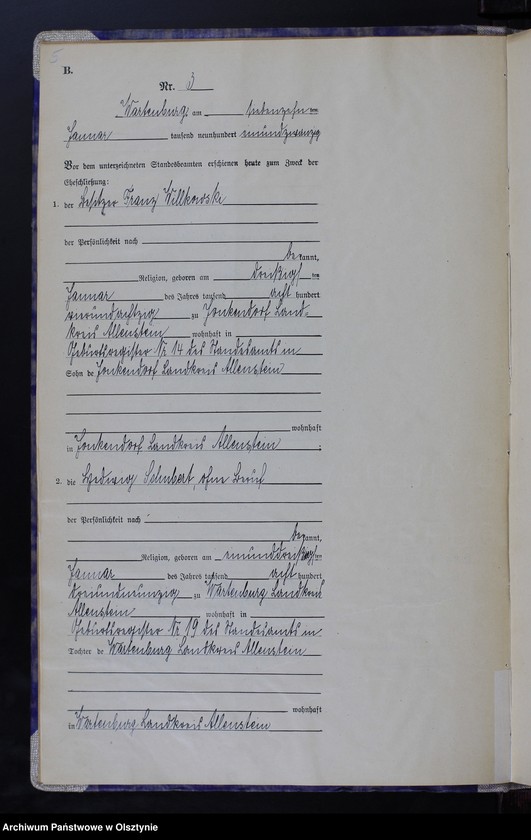 5
B.
Nr. 3
Wartenburg, am siebenzehnten
Januar tausend neunhundert einundzwanzig
Vor dem unterzeichneten Standesbeamten erschienen heute zum Zweck der
Eheschließung:
1. der Besitzer Franz Willkowski
der Persönlichkeit nach
bekannt,
Religion, geboren am dreißigsten
Januar des Jahres tausend acht hundert
neunundachtzig zu Jonkendorf Land-
kreis Allenstein wohnhaft in
Geburtsregister Nr 14 des Standesamts in
Sohn de Jonkendorf Landkreis Allenstein
wohnhaft
in Jonkendorf Landkreis Allenstein ;
2. die Hedwig Schubert, ohne Beruf
der Persönlichkeit nach
bekannt,
Religion, geboren am einunddreißigsten
Januar des Jahres tausend acht hundert
dreiundneunzig zu Wartenburg Landkreis
Allenstein wohnhaft in
Geburtsregister Nr 19 des Standesamts in
Tochter de Wartenburg Landkreis Allenstein
wohnhaft
in Wartenburg Landkreis Allenstein
Archiwum Państwowe w Olsztynie